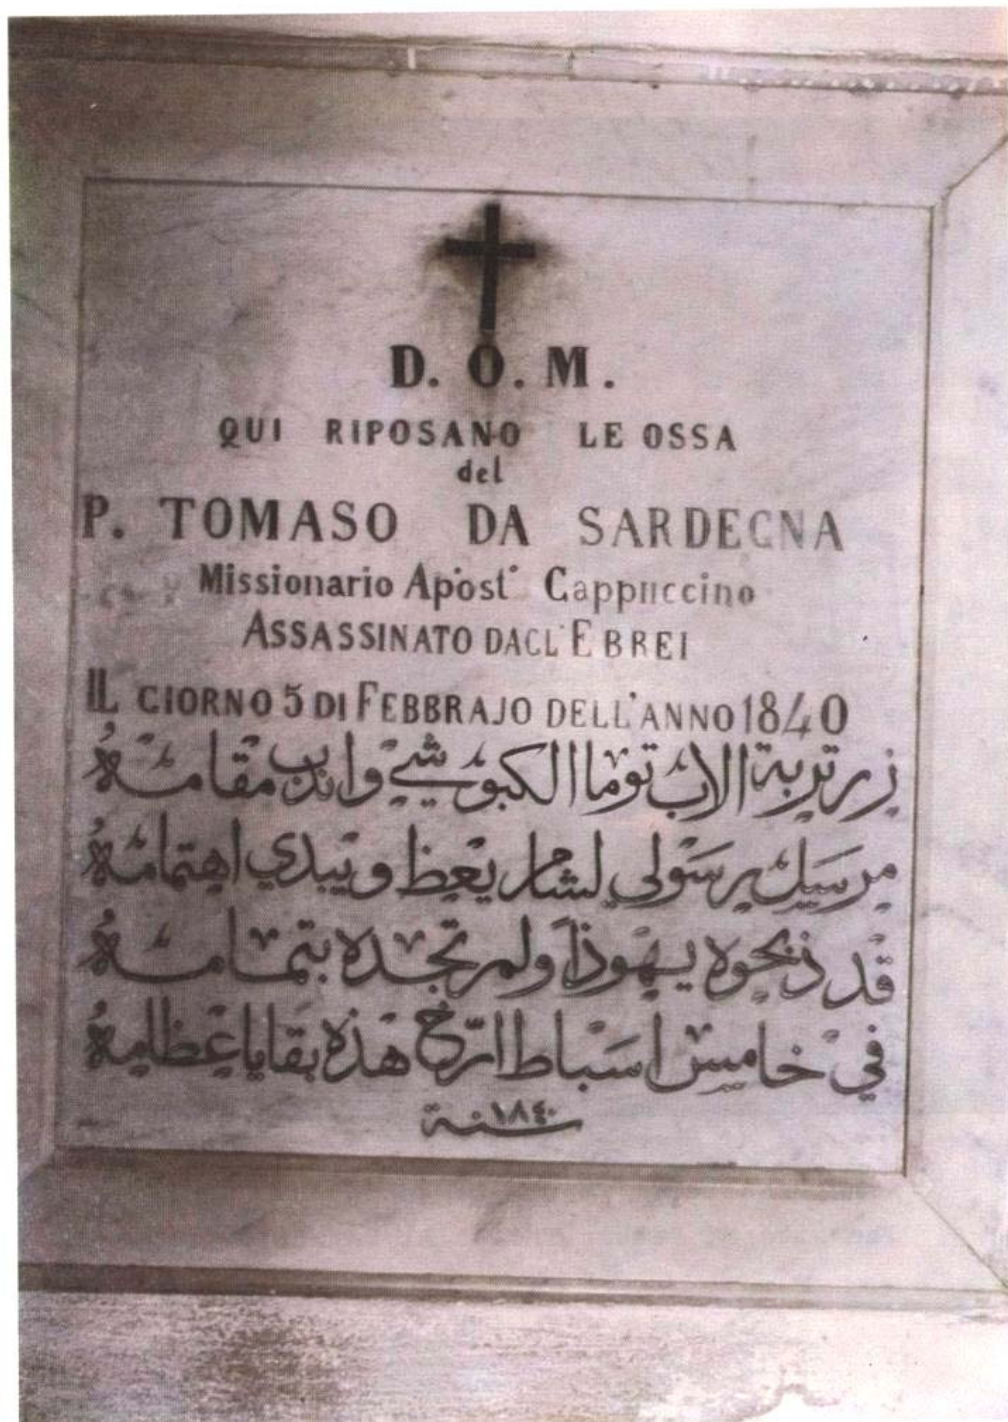 D. O. M.
QUI RIPOSANO LE OSSA
del
P. TOMASO DA SARDEGNA
Missionario Apost° Cappuccino
ASSASSINATO DAGL'EBREI
IL GIORNO 5 DI FEBBRAJO DELL'ANNO 1840
زر تربة الاب توما الكبوشي واندب مقامه
مرسل رسولي لشام يعظ ويبدي اهتمامه
قد ذبحوه يهوذا ولم تجده بتمامه
في خامس اسباط ارخ هذه بقايا عظامه
سنة ١٨٤٠